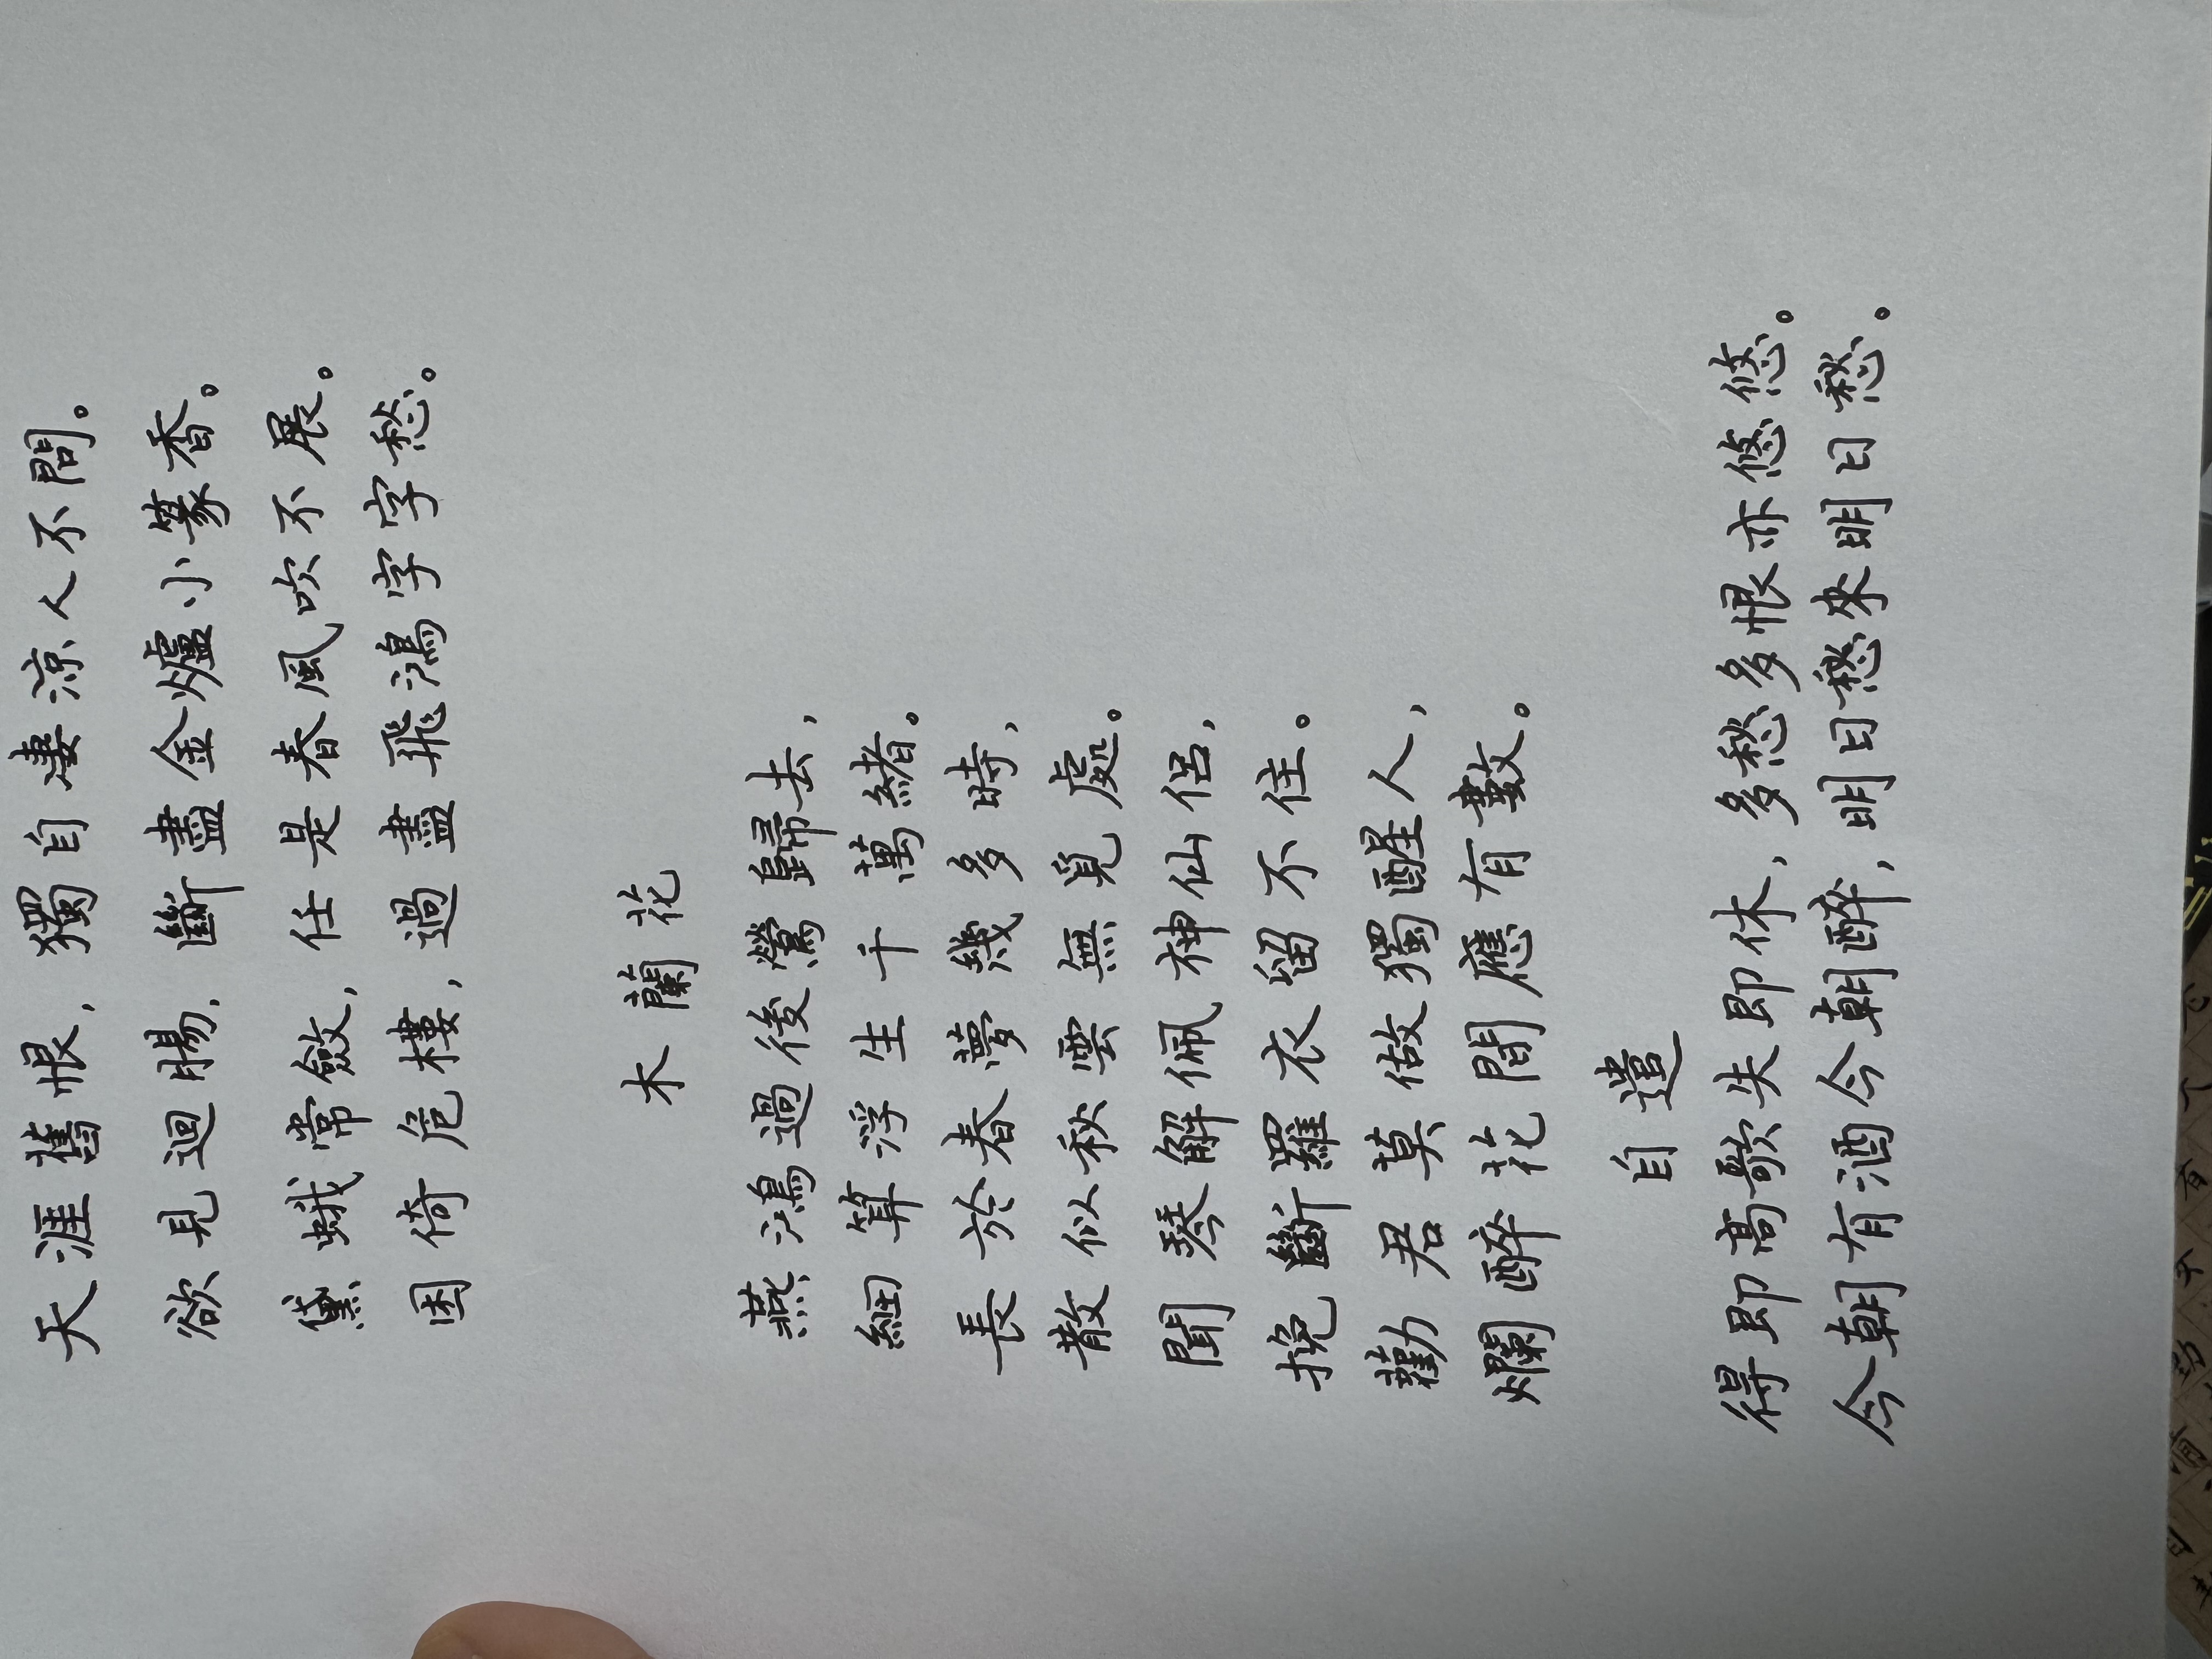 天涯舊恨，獨自凄涼人不問。
欲見迴腸，斷盡金爐小篆香。
黛蛾常斂，任是春風吹不展。
困倚危樓，過盡飛鴻字字愁。
木蘭花
燕鴻過後鶯歸去，
細算浮生千萬緒。
長於春夢幾多時，
散似秋雲無覓處。
聞琴解佩神仙侶，
挽斷羅衣留不住。
勸君莫做獨醒人，
爛醉花間應有數。
自遣
得即高歌失即休，多愁多恨亦悠悠。
今朝有酒今朝醉，明日愁來明日愁。